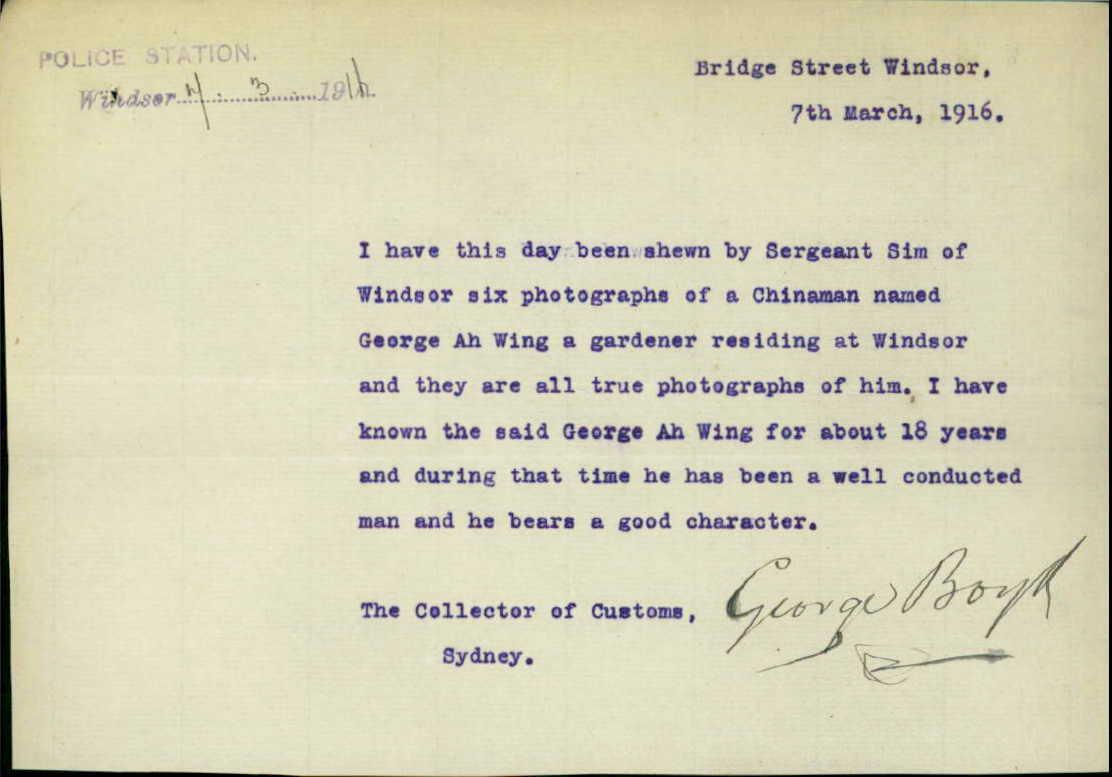 POLICE STATION.
Windsor 7. 3 1916
Bridge Street Windsor,
7th March, 1916.
I have this day been shewn by Sergeant Sim of
Windsor six photographs of a Chinaman named
George Ah Wing a gardener residing at Windsor
and they are all true photographs of him. I have
known the said George Ah Wing for about 18 years
and during that time he has been a well conducted
man and he bears a good character.
George
The Collector of Customs,
Sydney.